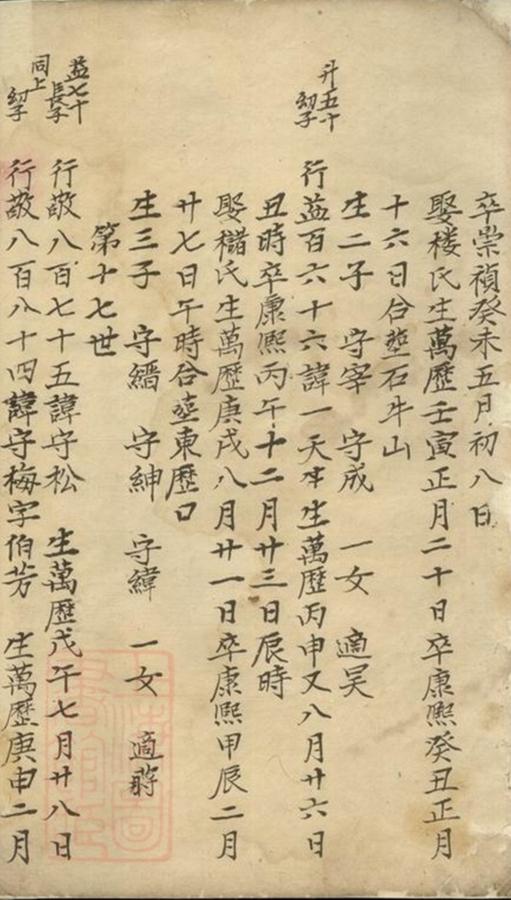 卒崇禎癸未五月初八日
娶楼氏生萬歷壬寅正月二十日卒康熈癸丑正月
十六日合塟石牛山
生二子 守宰 守成 一女 適吴
升五十
幼子
行益百六十六諱一天 生萬歷丙申又八月廿六日
丑時卒康熈丙午十二月廿三日辰時
娶樯氏生萬歷庚戌八月廿一日卒康熈甲辰二月
廿七日午時合塟東歷口
生三子 守縉 守紳 守緯 一女 適蔣
第十七世
益七十
長子
行敬八百七十五諱守松 生萬歷戊午七月廿八日
同上
幼子
行敬八百八十四諱守梅字伯芳 生萬歷庚申二月